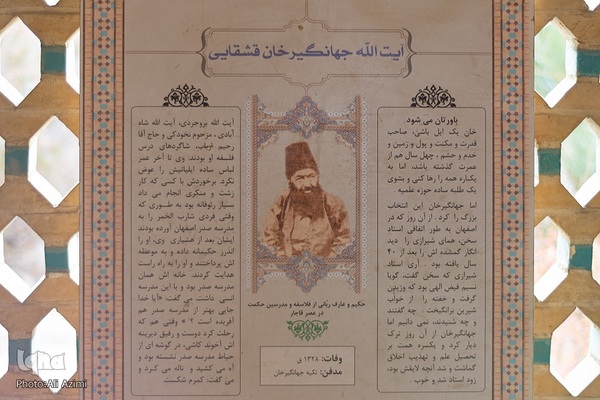 آیت الله جهانگیرخان قشقایی
باورتان می شود.
خان یک ایل باشی، صاحب
قدرت و مکنت و پول و زمین و
خدم و حشم ، چهل سال هم از
عمرت گذشته باشد، اما به
یکباره همه را رها کنی و بشوی
یک طلبه ساده حوزه علمیه .
اما جهانگیرخان این انتخاب
بزرگ را کرد . از آن روز که در
اصفهان به طور اتفاقی استاد
سخن، همای شیرازی را دید
انگار گمشده اش را بعد از ۴۰
سال یافته بود . آری استاد
شیرازی که سخن گفت، گویا
نسیم فیض الهی بود که وزیدن
گرفت و خفته را از خواب
شیرین برانگیخت . چه گفتند
و چه شنیدند، نمی دانیم اما
جهانگیرخان از آن روز ترک
دیار کرد و یکسره همت بر
تحصیل علم و تهذیب اخلاق
گماشت و شد آنچه لایقش بود،
زود استاد شد و خوب .
حکیم و عارف ربانی از فلاسفه و مدرسین حکمت
در عصر قاجار
وفات: ۱۳۲۸ ق
مدفن: تکیه جهانگیرخان
آیت الله بروجردی، آیت الله شاه
آبادی ، مرحوم نخودکی و حاج آقا
رحیم ارباب، شاگردهای درس
فلسفه او بودند. وی تا آخر عمر
لباس ساده ایلیاتیش را عوض
نکرد. برخوردش با کسی که کار
زشت و منکری انجام می داد
بسیار رئوفانه بود به طوری که
وقتی فردی شارب الخمر را به
مدرسه صدر اصفهان آورده بودند
ایشان بعد از هشیاری وی، او را
اندرز حکیمانه داده و به موعظه
اش پرداختند و او را به راه راست
هدایت کردند. خانه اش همان
مدرسه صدر بود و با این مدرسه
انسی داشت می گفت: «آیا خدا
جایی بهتر از مدرسه صدر هم
آفریده است ؟ » وقتی هم که
رحلت کرد دوست و رفیق دیرینه
اش آخوند کاشی، در گوشه ای از
حیاط مدرسه صدر نشسته بود و
آه می کشید و ناله می کرد و
می گفت: کمرم شکست.
iqna
Photo:Ali Azimi